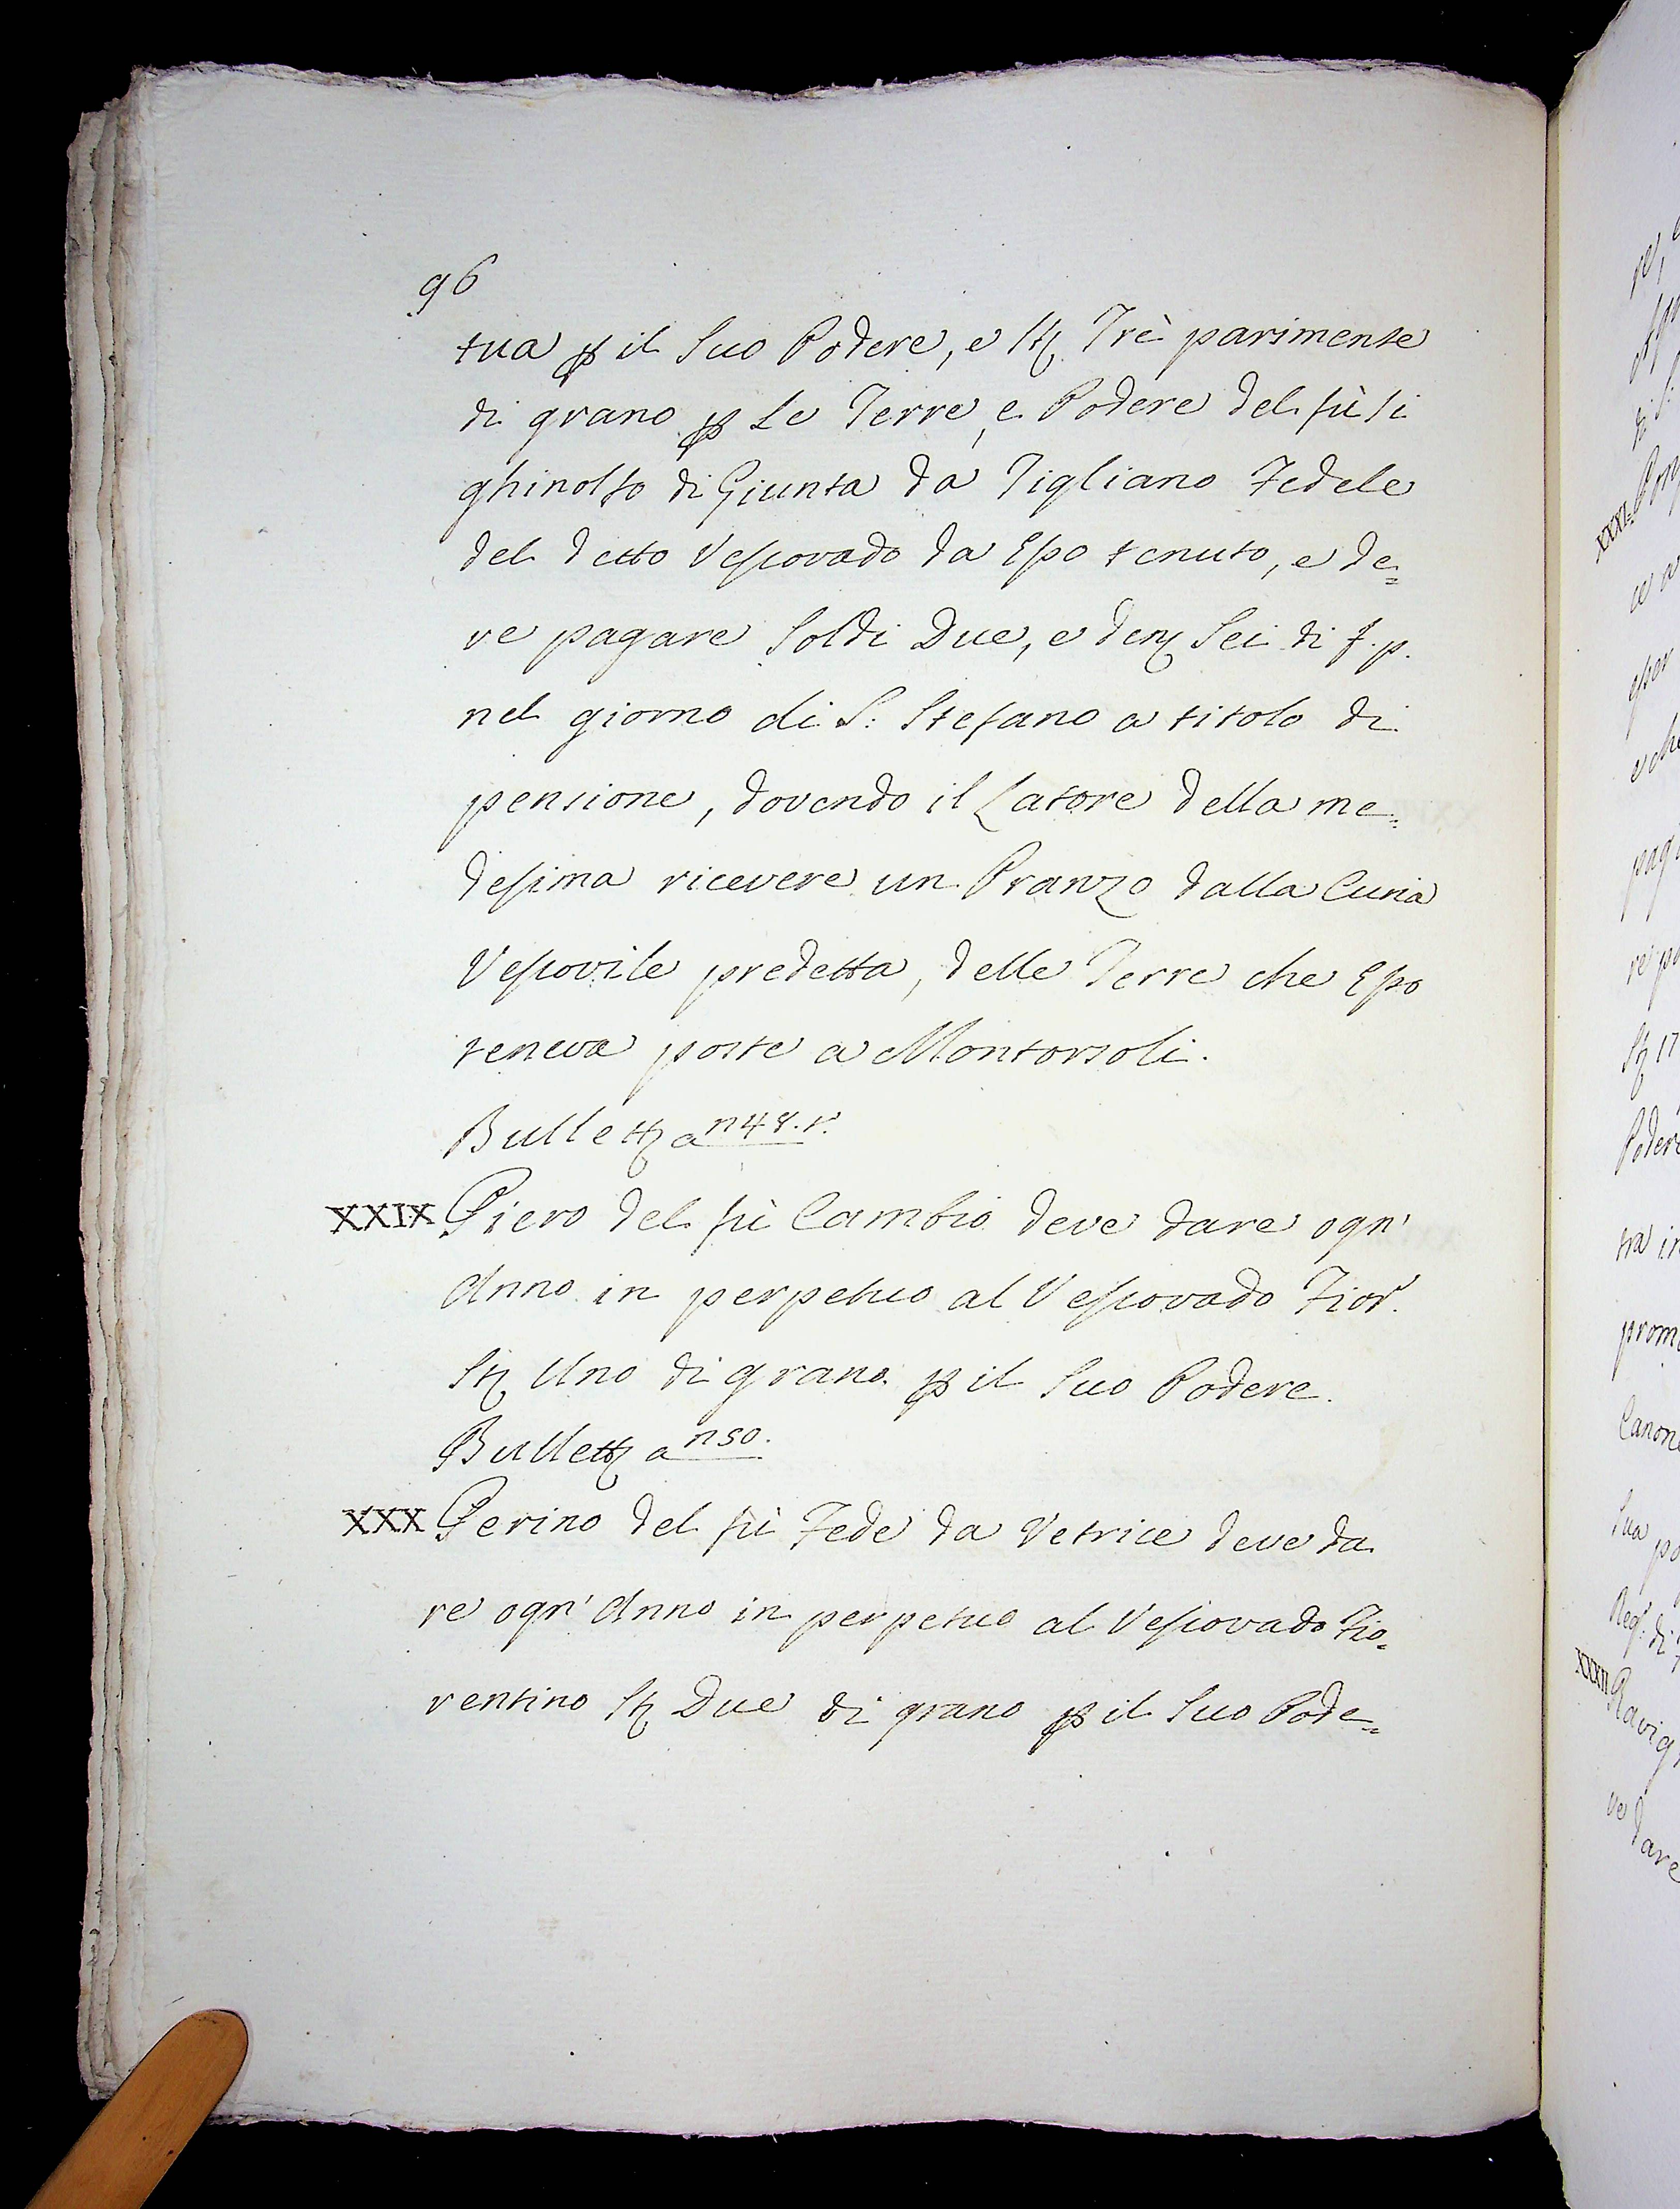 96
tua ꝑ il Suo Podere, e Stȝ Trè parimente
di grano ꝑ Le Terre, e Podere del fù Si
ghinolfo di Giunta da Tigliano Fedele
del detto Vescovado da Esso tenuto, e de=
ve pagare Soldi Due, e denȝ Sei di f. p.
nel giorno di S: Stefano a titolo di
pensione, dovendo il Latore della me=
desima ricevere un Pranzo dalla Curia
Vescovile predetta, delle Terre che Esso
teneva poste a Montorsoli.
Bullettȝ a n 48. r.
XXIX Piero del fù Cambio deve dare ogn'
Anno in perpetuo al Vescovado Fior.
Stȝ Uno di grano ꝑ il Suo Podere.
Bullettȝ a n 50.
XXX Perino del fù Fede da Vetrice deve da
re ogn' Anno in perpetuo al Vescovado Fio=
rentino Stȝ Due di grano ꝑ il Suo Pode=
XXXI
pag
Poder
prom
Canon
Sua po
XXXII Ravig
ve dare